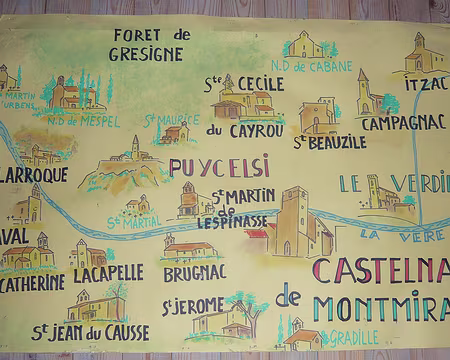 FORET de
GRESIGNE
N.D de CABANE
ITZAC
Ste CECILE
du CAYROU
St BEAUZILE
CAMPAGNAC
St MARTIN
URBENS
N.D de MESPEL
St MAURICE
LARROQUE
PUYCELSI
St MARTIN
de
LESPINASSE
LE VERDI
St MARTIAL
LA VERE
AVAL
CATHERINE
LACAPELLE
BRUGNAC
CASTELNA
de MONTMIRA
St JEAN du CAUSSE
St JEROME
GRADILLE